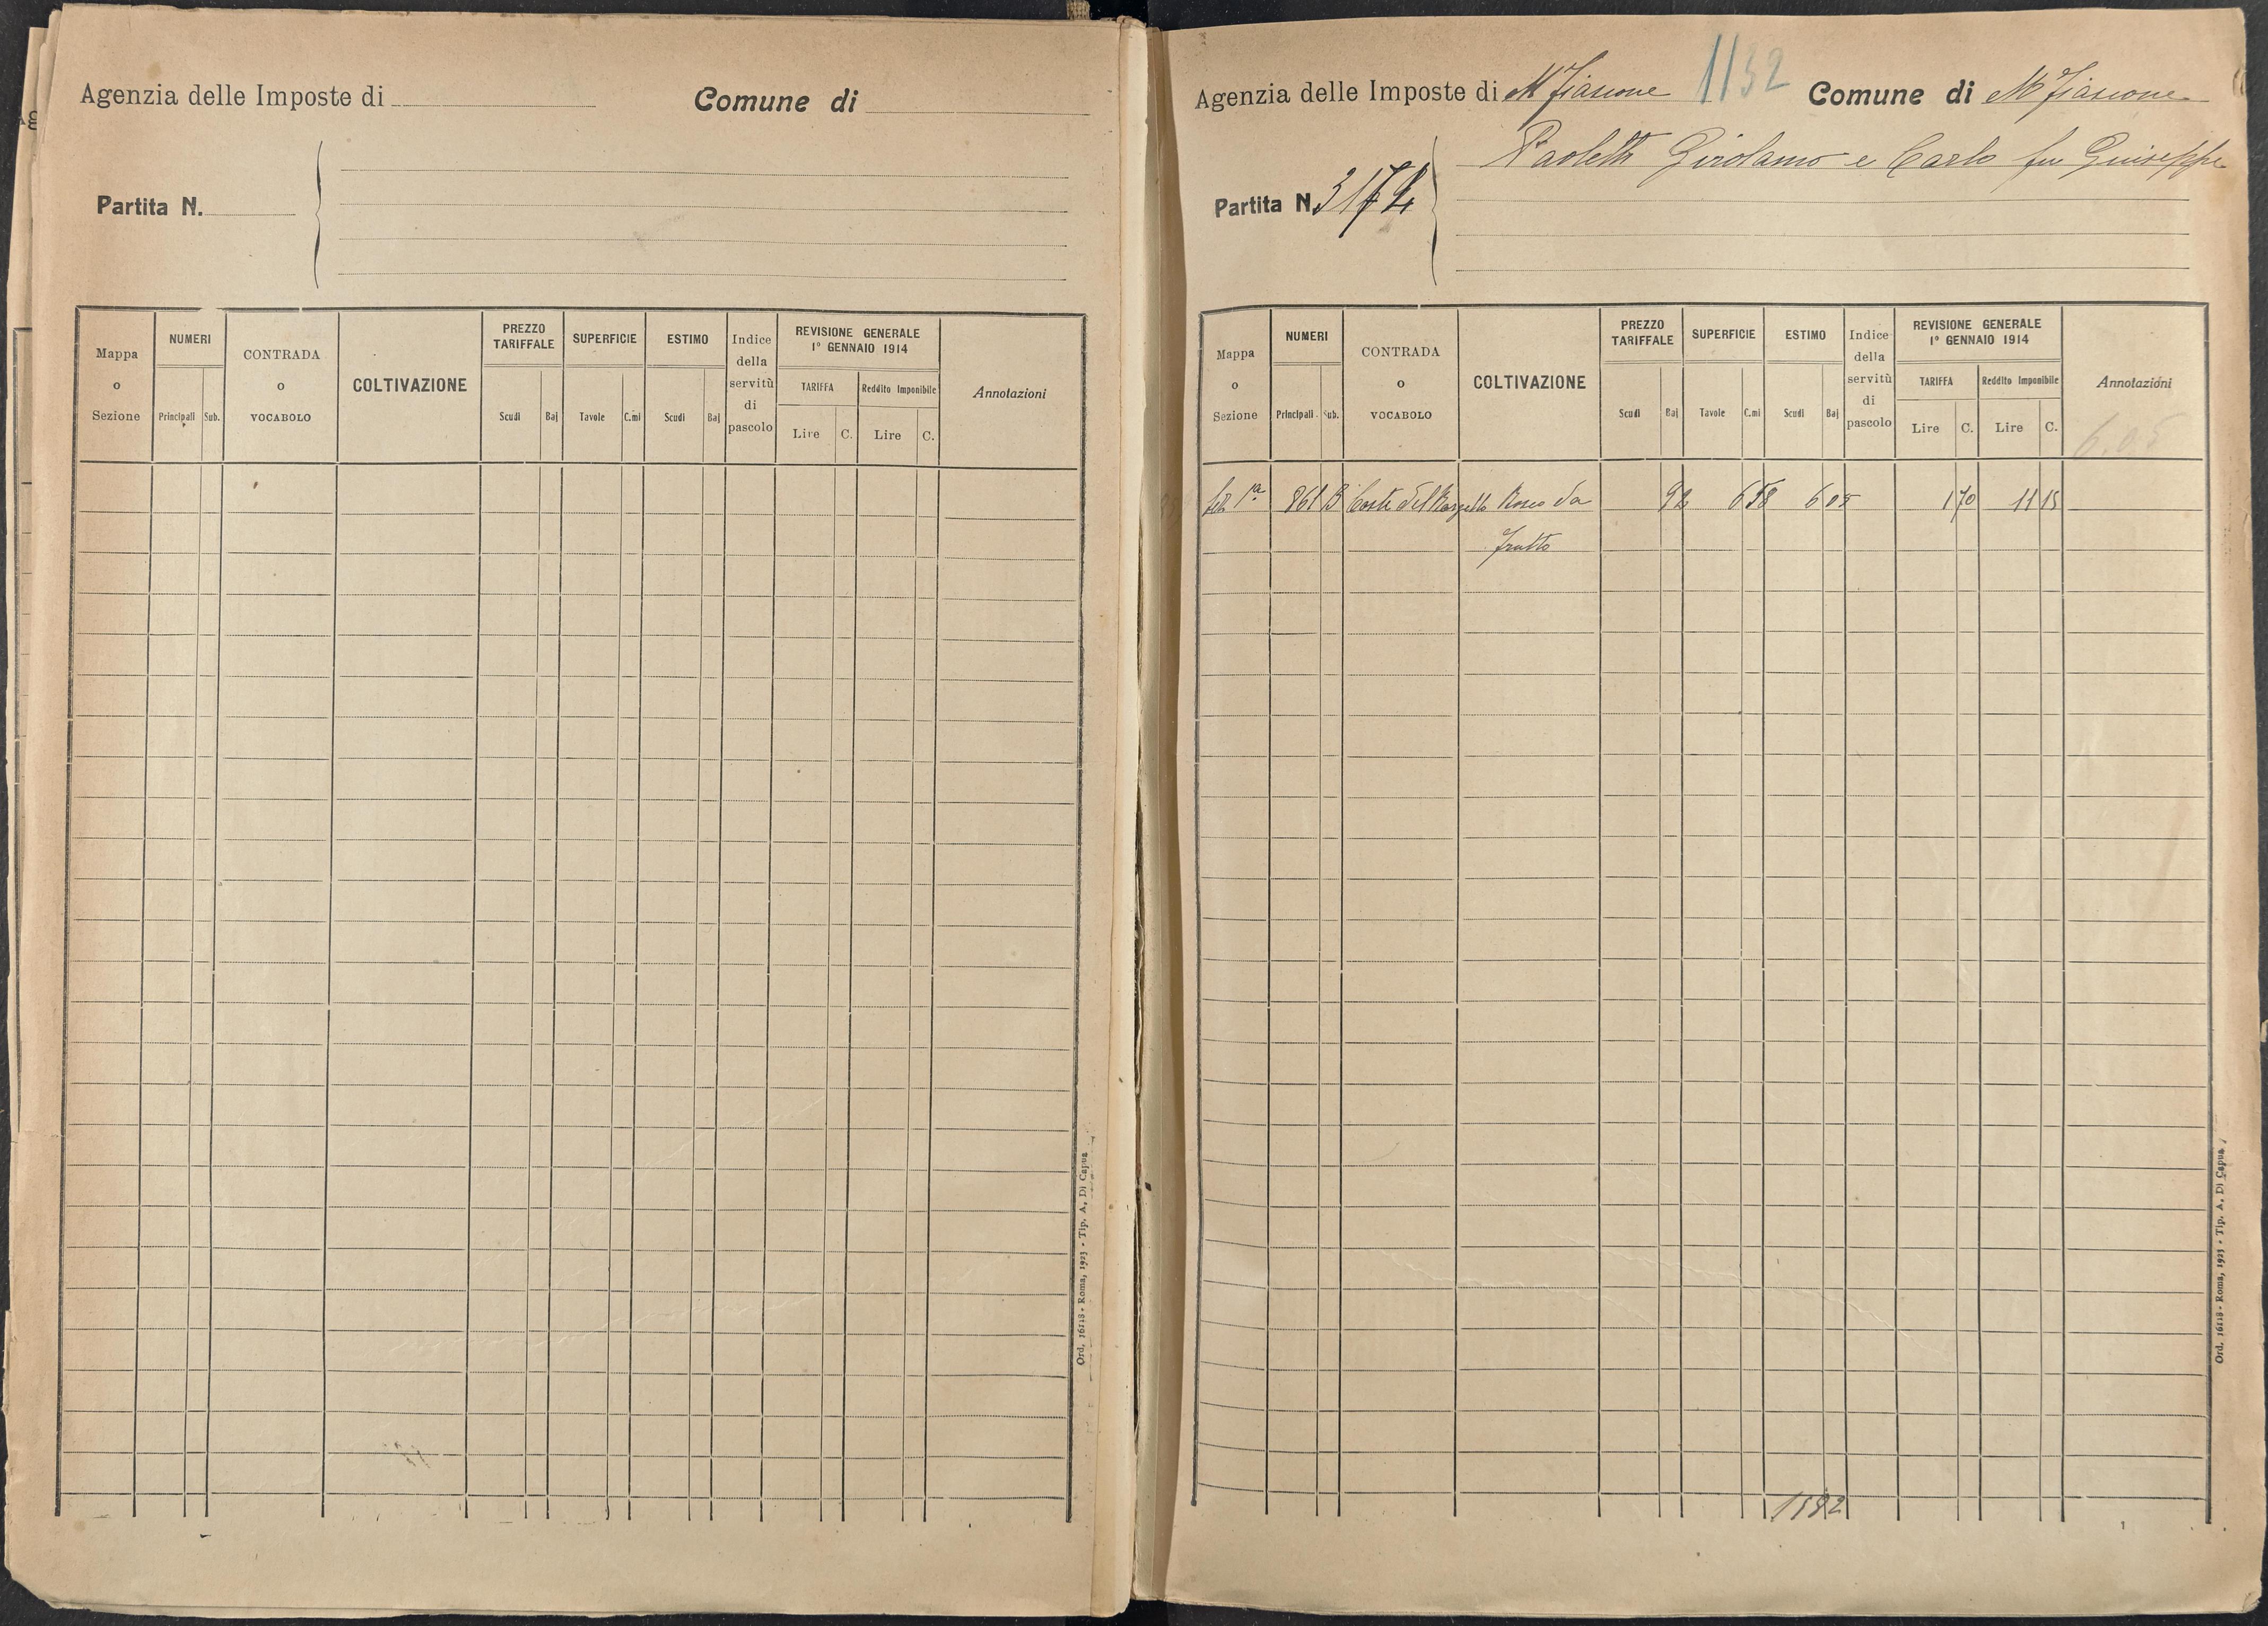 Agenzia delle Imposte di
Comune di
Partita N.
Mappa o Sezione
NUMERI
Principali
Sub.
CONTRADA o VOCABOLO
COLTIVAZIONE
PREZZO TARIFFALE
Scudi
Baj
SUPERFICIE
Tavole
C.mi
ESTIMO
Scudi
Baj
Indice della servitù di pascolo
REVISIONE GENERALE
1° GENNAIO 1914
TARIFFA
Lire
C.
Reddito Imponibile
Lire
C.
Annotazioni
Ord. 16118 - Roma, 1923 - Tip. A. Di Capua
Agenzia delle Imposte di M Fiascone
1132
Comune di M Fiascone
Paoletti Girolamo e Carlo fu Giuseppe
Partita N. 3172
Mappa o Sezione
NUMERI
Principali
Sub.
CONTRADA o VOCABOLO
COLTIVAZIONE
PREZZO TARIFFALE
Scudi
Baj
SUPERFICIE
Tavole
C.mi
ESTIMO
Scudi
Baj
Indice della servitù di pascolo
REVISIONE GENERALE
1° GENNAIO 1914
TARIFFA
Lire
C.
Reddito Imponibile
Lire
C.
Annotazioni
6.05
1ª 861 B Coste del da 92 6 58 6 05 1 70 11 15
frutto
1132
Ord. 16118 - Roma, 1923 - Tip. A. Di Capua